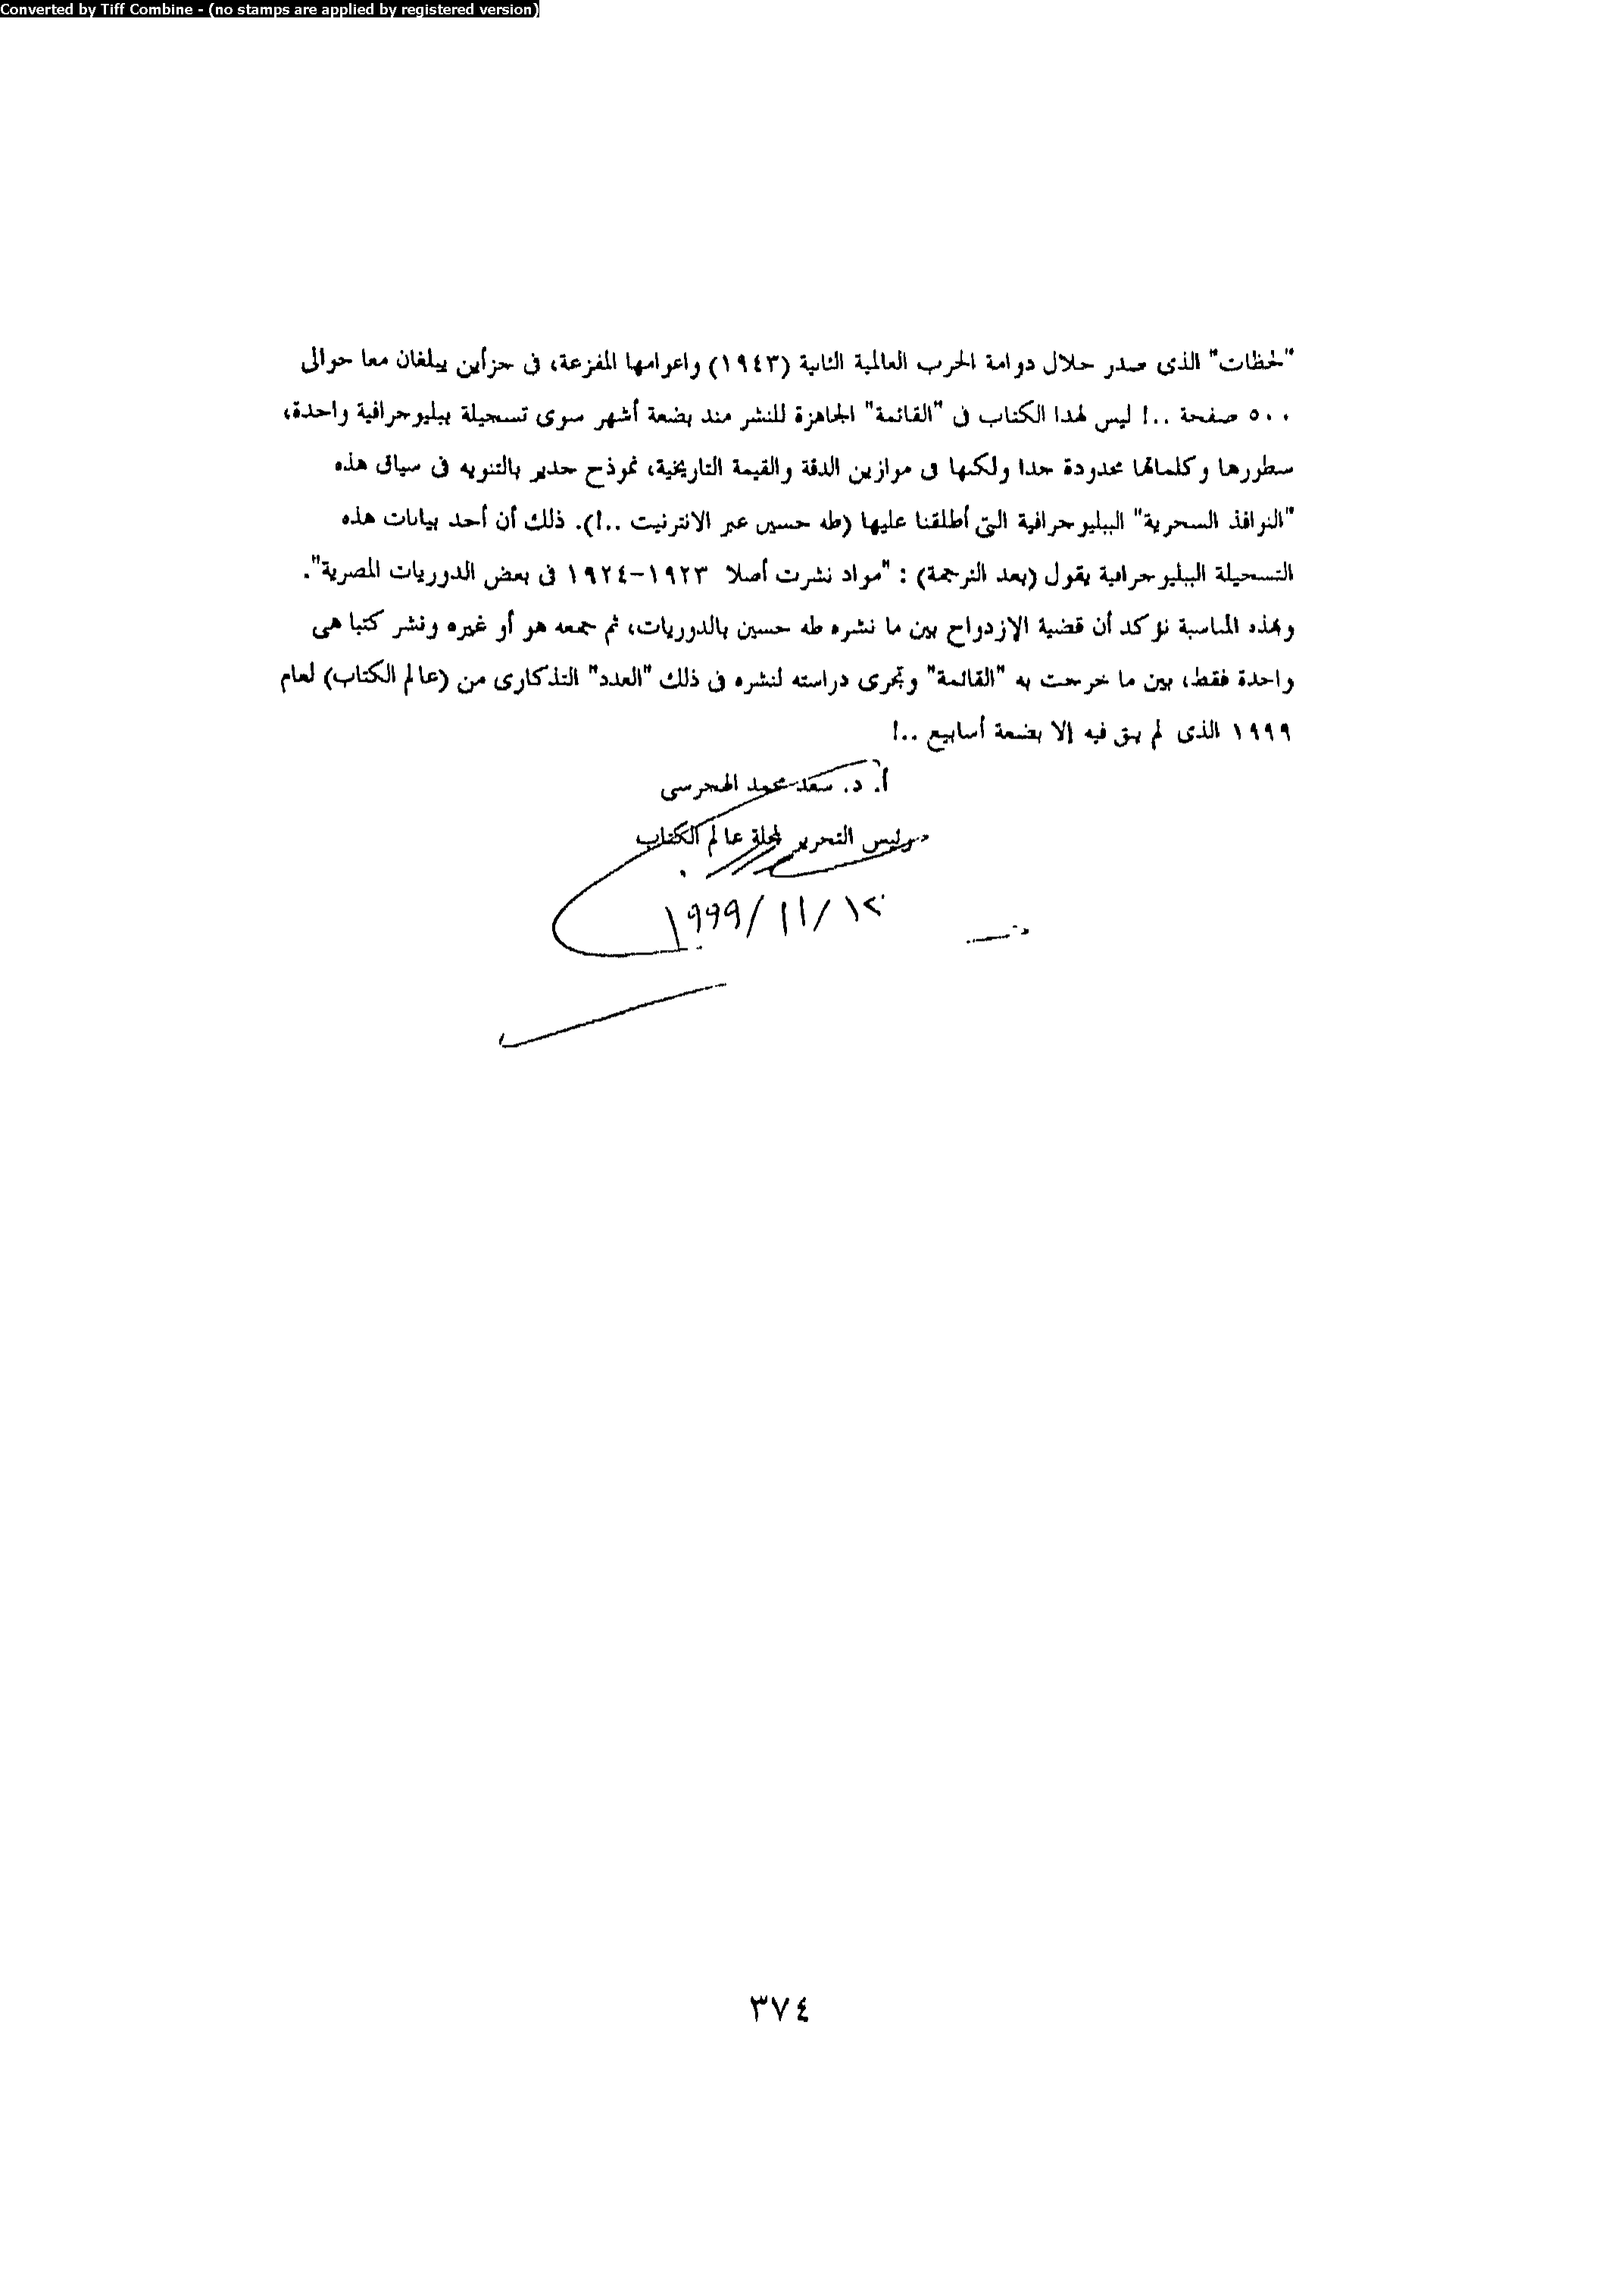 Converted by Tiff Combine - (no stamps are applied by registered version)
"لحظات" الذى صدر خلال دوامة الحرب العالمية الثانية (١٩٤٣) واعوامها المفزعة، فى جزأين يبلغان معا حوالى
٥٠٠ صفحة ..! ليس لهذا الكتاب فى "القائمة" الجاهزة للنشر منذ بضعة أشهر سوى تسجيلة ببليوجرافية واحدة،
سطورها وكلماتها محدودة جدا ولكنها فى موازين الدقة والقيمة التاريخية، نموذج جدير بالتنويه فى سياق هذه
"النوافذ السحرية" الببليوجرافية التى أطلقنا عليها (طه حسين عبر الانترنيت ..!). ذلك أن أحد بيانات هذه
التسجيلة الببليوجرافية يقول (بعد الترجمة) : "مواد نشرت أصلا ١٩٢٣-١٩٢٤ فى بعض الدوريات المصرية".
وبهذه المناسبة نؤكد أن قضية الإزدواج بين ما نشره طه حسين بالدوريات، ثم جمعه هو أو غيره ونشر كتبا هى
واحدة فقط، بين ما خرجت به "القائمة" وتجرى دراسته لنشره فى ذلك "العدد" التذكارى من (عالم الكتاب) لعام
١٩٩٩ الذى لم يبق فيه إلا بضعة أسابيع ..!
أ. د. سعد محمد الهجرسى
رئيس التحرير لمجلة عالم الكتاب
١٢/ ١١ /١٩٩٩
٣٧٤